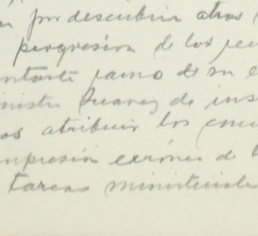 por descubrir otros
progresión de los rec
ontante ramo de su e
inistro Suarez de ins
os atribuir los cono
mpresión errónea de l
tareas ministeriales